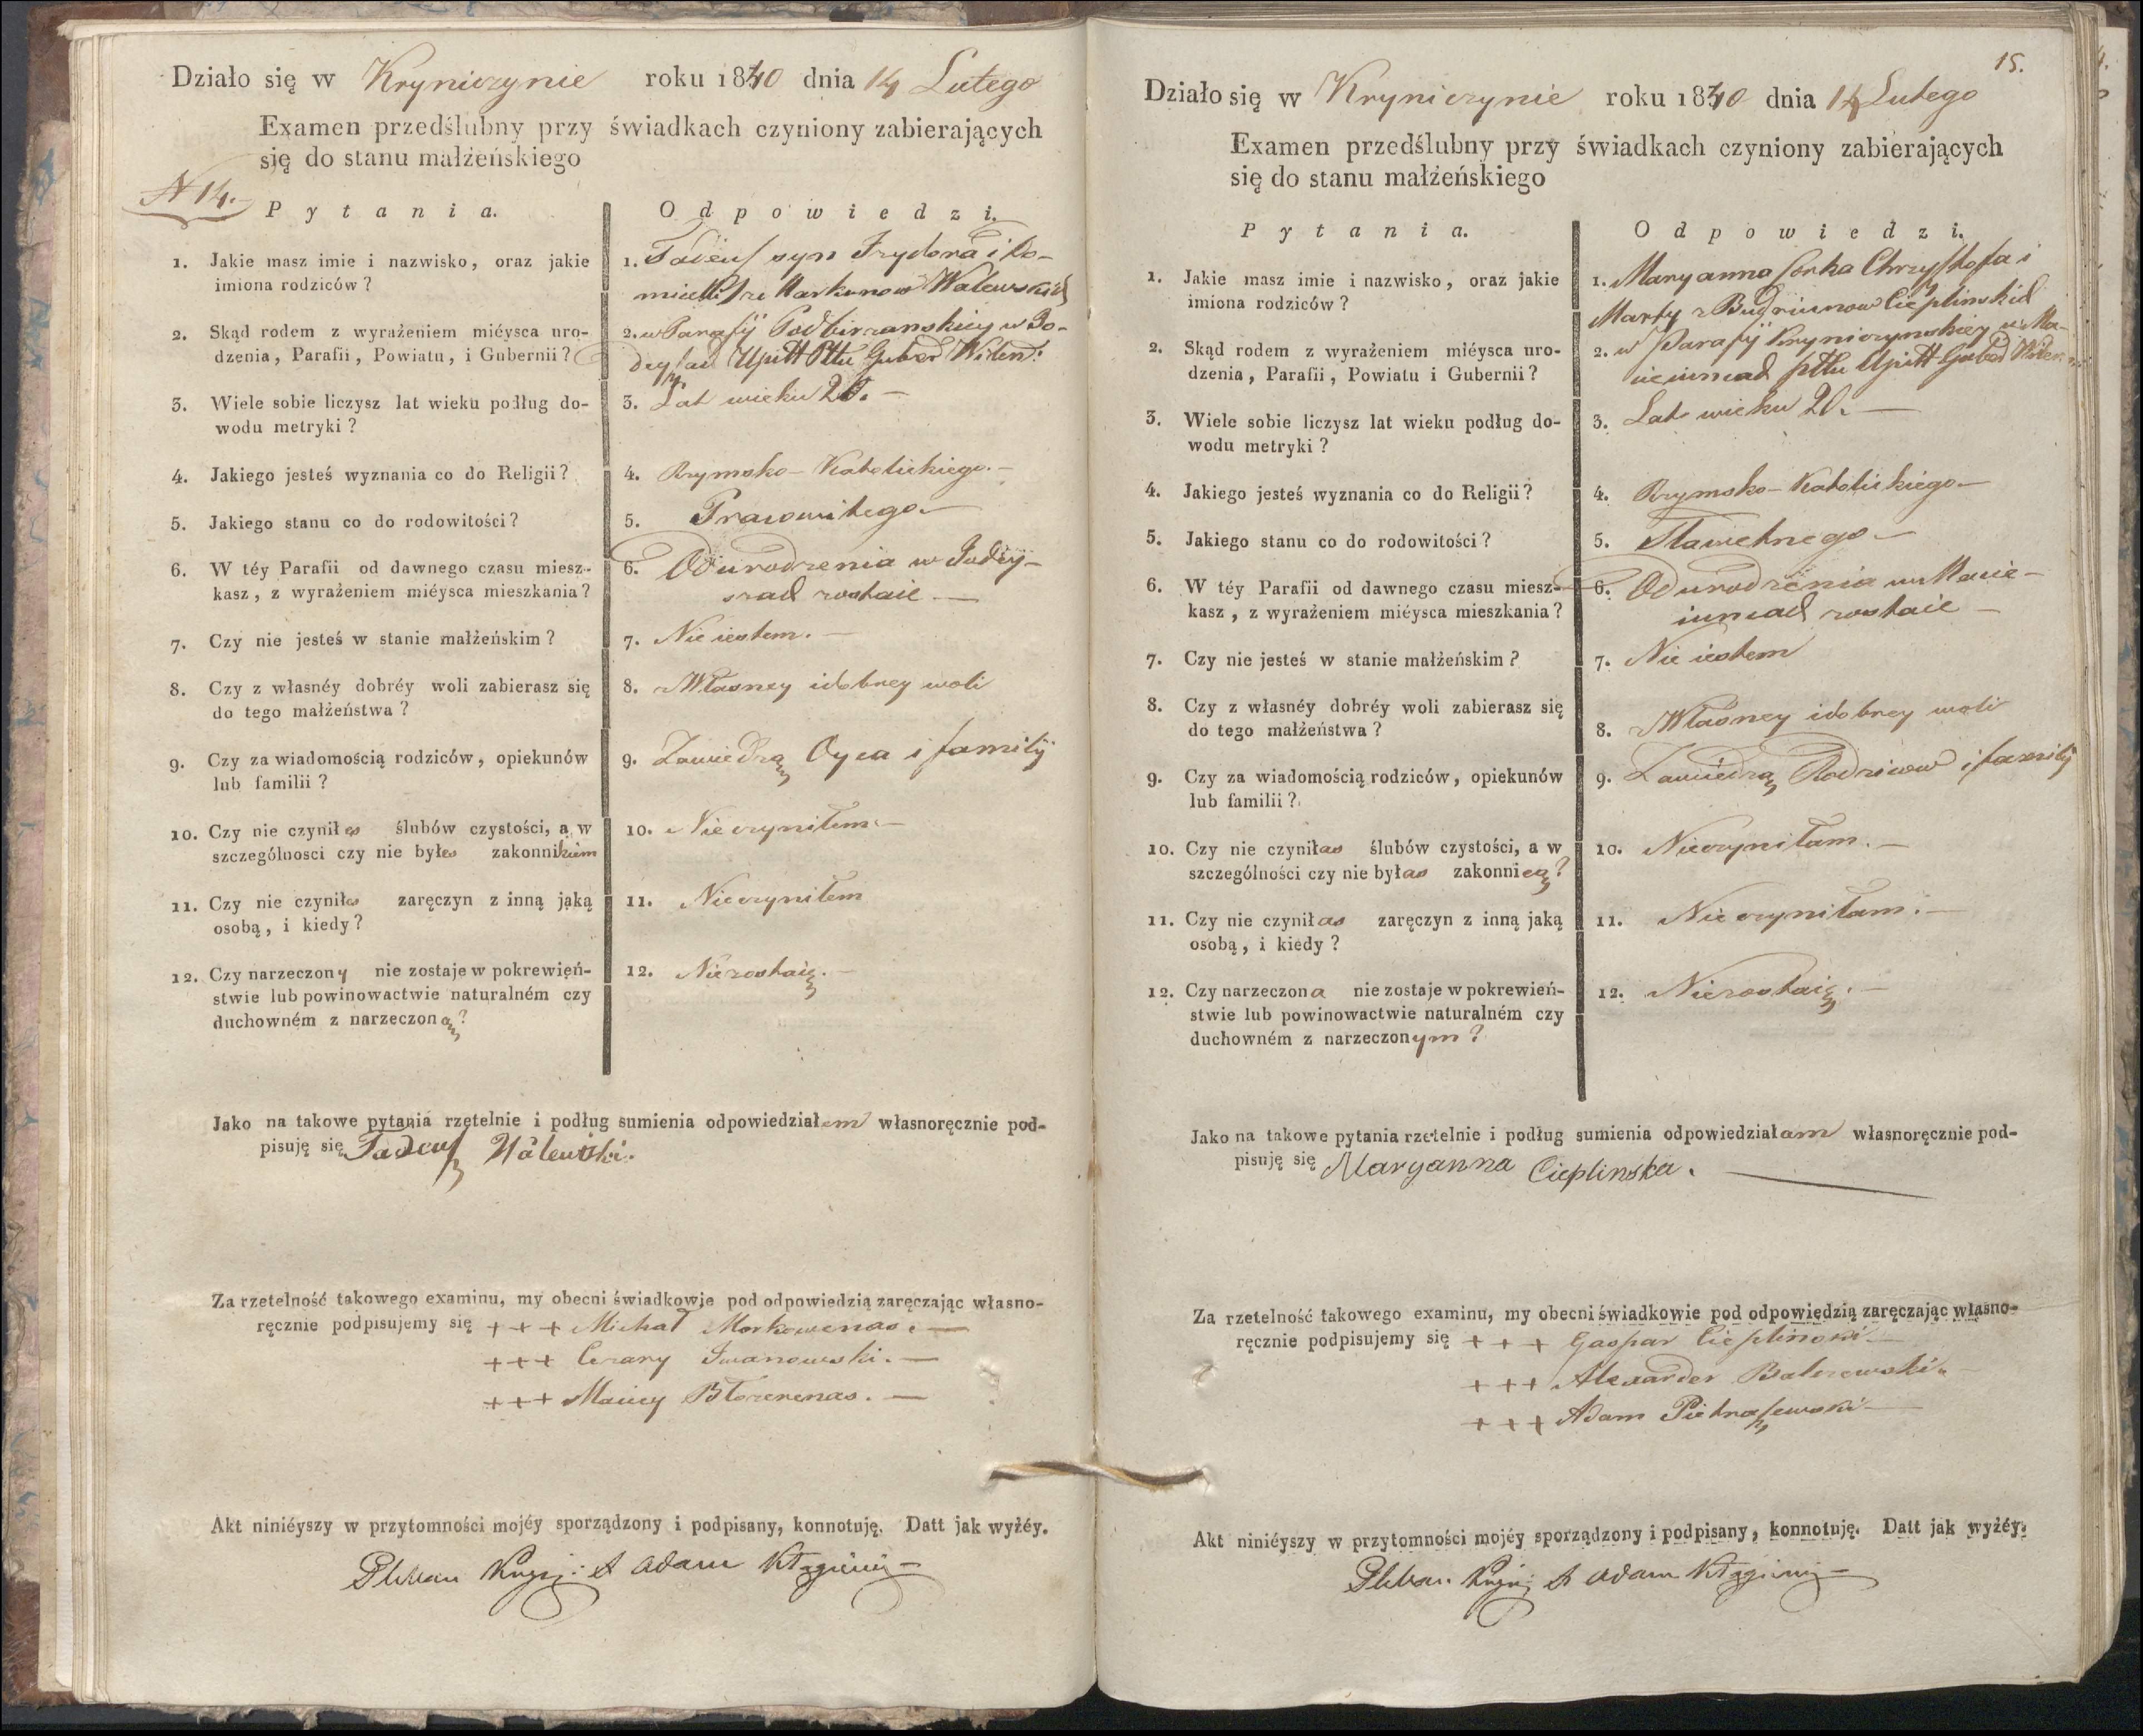 Działo się w Kryniczynie roku 1840 dnia 14 Lutego
Examen przedślubny przy świadkach czyniony zabierających
się do stanu małżeńskiego
N 14.
Pytania.
Odpowiedzi.
1. Jakie masz imie i nazwisko, oraz jakie
imiona rodziców?
1. Tadeusz syn Izydora i Do-
Walewskich
2. Skąd rodem z wyrażeniem miéysca uro-
dzenia, Parafii, Powiatu, i Gubernii?
2. w Parafij Podbirzanskiey w Jo-
Upitt Pttu Guber Wilen:
3. Wiele sobie liczysz lat wieku podług do-
wodu metryki?
3. Lat wieku
4. Jakiego jesteś wyznania co do Religii?
4. Rzymsko-Katolickiego.-
5. Jakiego stanu co do rodowitości?
5. Pracowitego-
6. W téy Parafii od dawnego czasu miesz-
kasz, z wyrażeniem miéysca mieszkania?
6. Od urodzenia w
zostaie —
7. Czy nie jesteś w stanie małżeńskim?
7. Nie iestem. —
8. Czy z własnéy dobréy woli zabierasz się
do tego małżeństwa?
8. Własney idobrey woli
9. Czy za wiadomością rodziców, opiekunów
lub familii?
9. Zawiedzą Oyca i familij
10. Czy nie czyniłes ślubów czystości, a w
szczególnosci czy nie byłes zakonnikiem
10. Nieczyniłem.-
11. Czy nie czyniłes zaręczyn z inną jaką
osobą, i kiedy?
11. Nieczyniłem
12. Czy narzeczony nie zostaje w pokrewień-
stwie lub powinowactwie naturalném czy
duchowném z narzeczoną?
12. Niezostaię.-
Jako na takowe pytania rzetelnie i podług sumienia odpowiedziałem własnoręcznie pod-
pisuję się Tadeusz Walewski.
Za rzetelność takowego examinu, my obecni świadkowie pod odpowiedzią zaręczając własno-
ręcznie podpisujemy się +++ Michał Morkowenas. —
+++ Cezary Iwanowski. —
+++ Maciey —
Akt niniéyszy w przytomności mojéy sporządzony i podpisany, konnotuję. Datt jak wyżéy.
Pleban Adam
15.
Działo się w Kryniczynie roku 1840 dnia 14 Lutego
Examen przedślubny przy świadkach czyniony zabierających
się do stanu małżeńskiego
Pytania.
Odpowiedzi.
1. Jakie masz imie i nazwisko, oraz jakie
imiona rodziców?
1. Maryanna Corka Chrzysztofa i
Marty z Budriunow Cieplinskich
2. Skąd rodem z wyrażeniem miéysca uro-
dzenia, Parafii, Powiatu i Gubernii?
2. w Parafij Kryniczynskiey w Ma-
cieiuncach pttu Upitt Guber
3. Wiele sobie liczysz lat wieku podług do-
wodu metryki?
3. Lat wieku 20. —
4. Jakiego jesteś wyznania co do Religii?
4. Rzymsko-Katolickiego—
5. Jakiego stanu co do rodowitości?
5. Sławetnego—
6. W téy Parafii od dawnego czasu miesz-
kasz, z wyrażeniem miéysca mieszkania?
6. Od urodzenia w Macie-
iuncach zostaie —
7. Czy nie jesteś w stanie małżeńskim?
7. Nie iestem
8. Czy z własnéy dobréy woli zabierasz się
do tego małżeństwa?
8. Własney idobrey woli
9. Czy za wiadomością rodziców, opiekunów
lub familii?
9. Zawiedzą Rodzicow i familij
10. Czy nie czyniłas ślubów czystości, a w
szczególności czy nie byłas zakonnicą?
10. Nieczyniłam. —
11. Czy nie czyniłas zaręczyn z inną jaką
osobą, i kiedy?
11. Nie czyniłam. —
12. Czy narzeczona nie zostaje w pokrewień-
stwie lub powinowactwie naturalném czy
duchowném z narzeczonym?
12. Niezostaię. —
Jako na takowe pytania rzetelnie i podług sumienia odpowiedziałam własnoręcznie pod-
pisuję się Maryanna Cieplinska.
Za rzetelność takowego examinu, my obecni świadkowie pod odpowiedzią zaręczając własno-
ręcznie podpisujemy się +++ Gaspar Cieplinski—
+++ Alexander Balczewski.
+++ Adam Pietraszewski—
Akt niniéyszy w przytomności mojéy sporządzony i podpisany, konnotuję. Datt jak wyżéy.
Pleban Adam